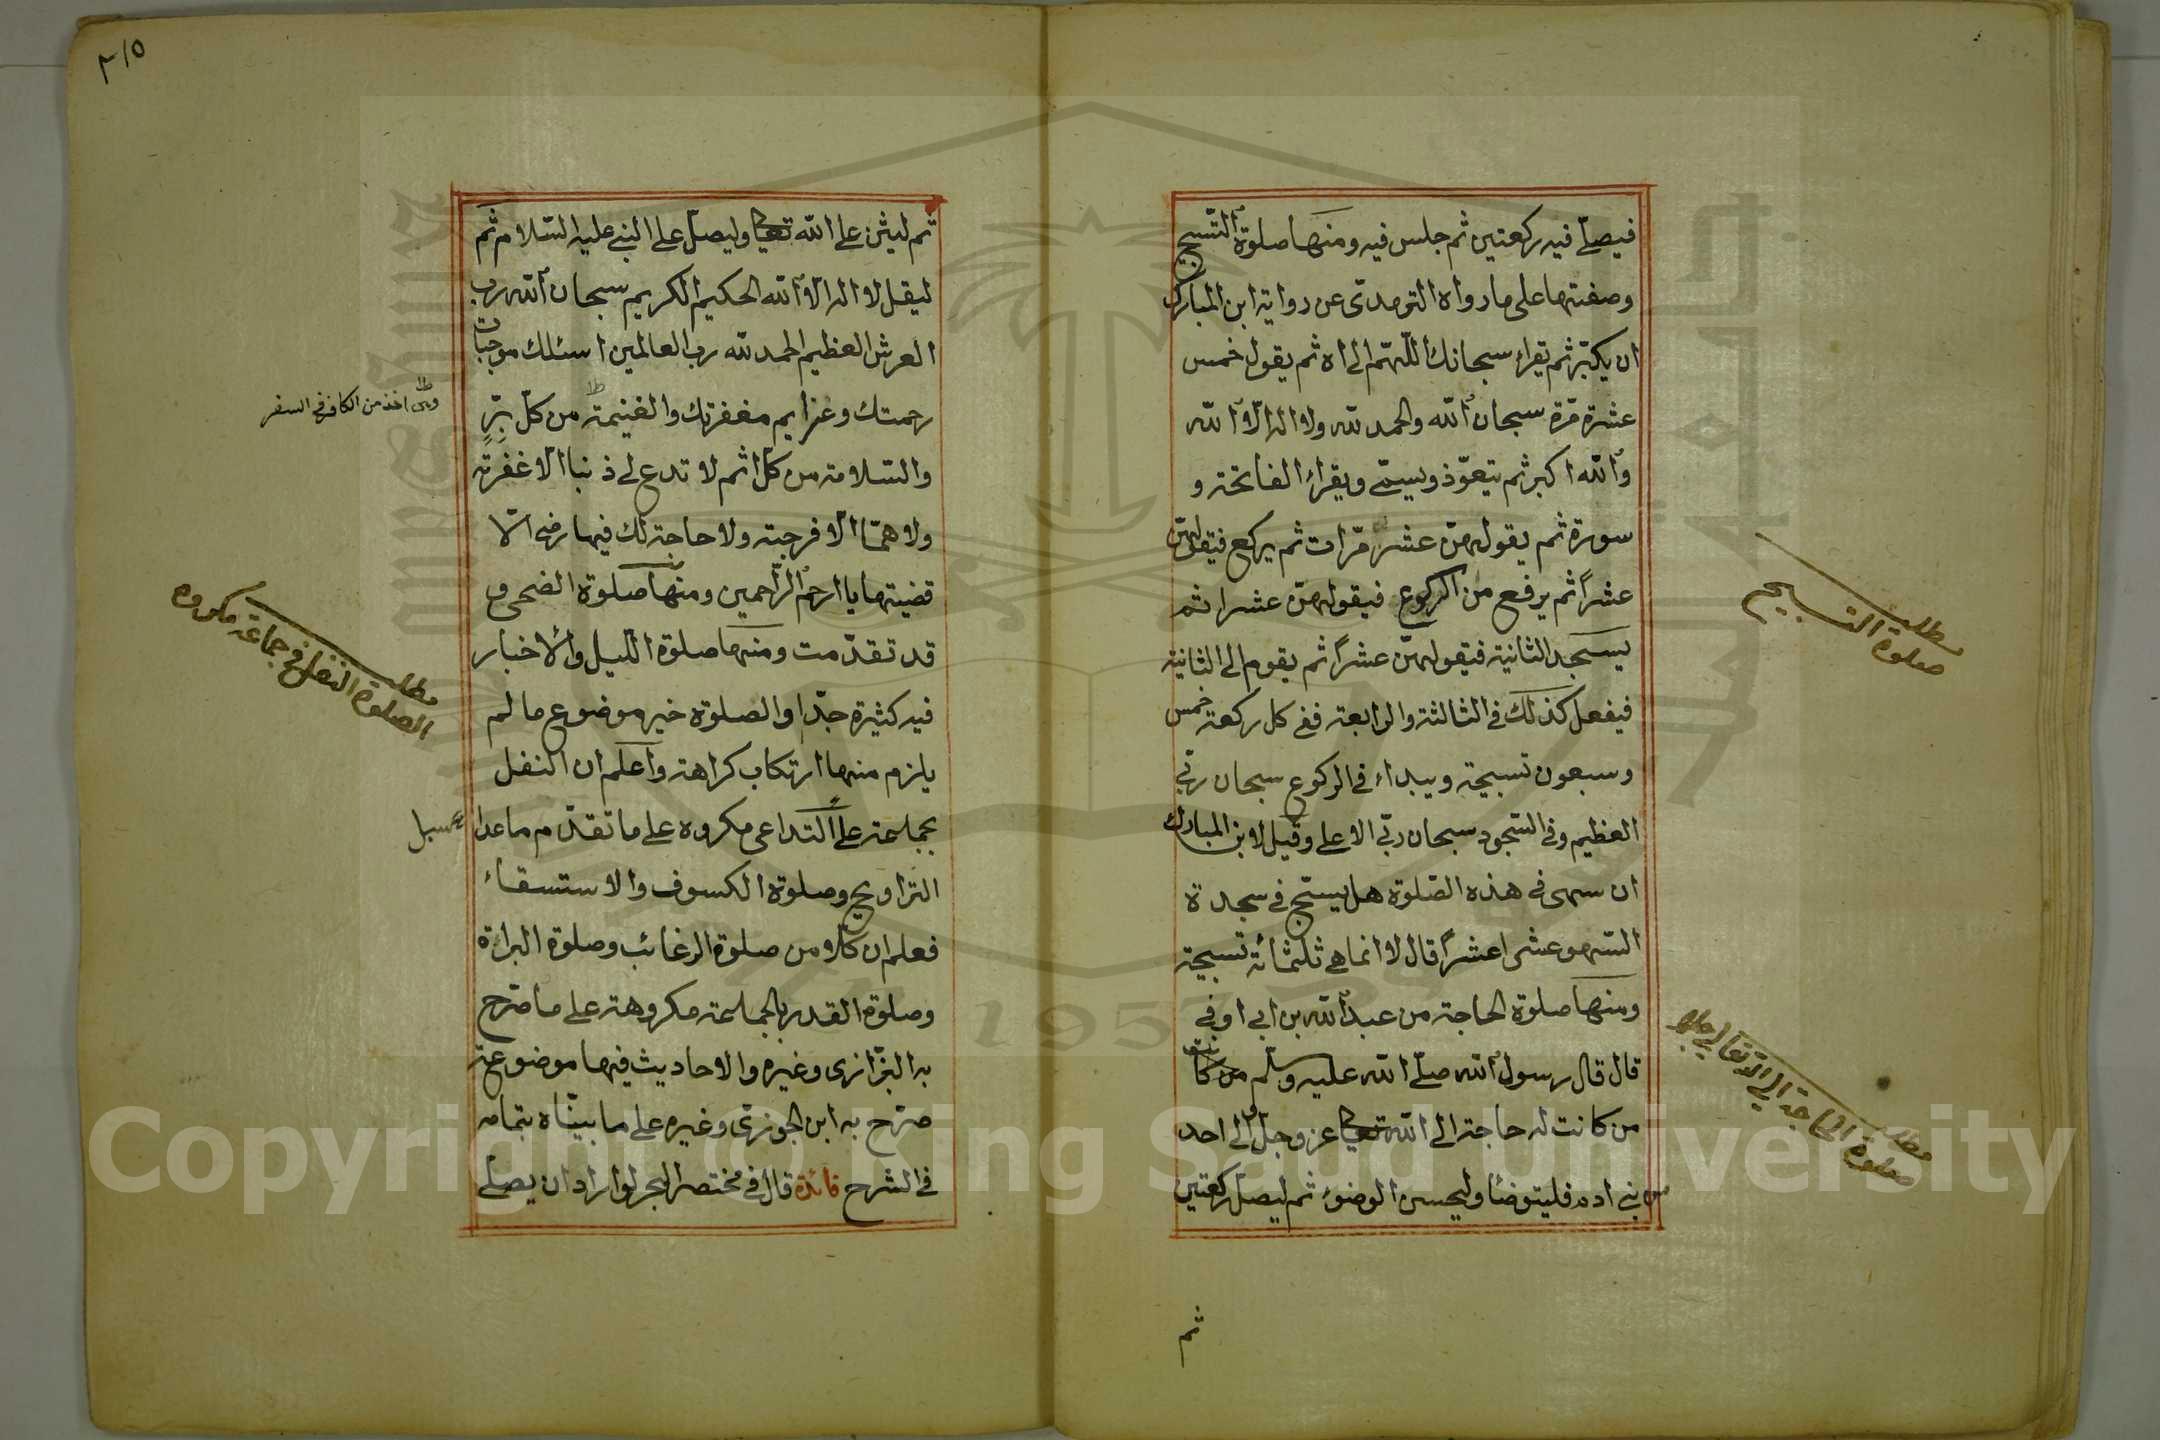 فيصلّي فيه ركعتين ثم جلس فيه ومنها صلوة التسبيح
وصفتها على ما رواه الترمدى عن رواية ابن المبارك
ان يكبّر ثم يقراء سبحانك اللّهمّ الى اه ثم يقول خمس
عشرة مرّة سبحان الله والحمد لله ولا اله الّا الله
والله اكبر ثم يتعوّذ ويسمّي ويقراء الفاتحة و
سورة ثم يقولهنّ عشر مرّات ثم يركع فيقولهنّ
عشراً ثم يرفع من الركوع فيقولهنّ عشرا ثم
يسجد الثانية فيقولهنّ عشراً ثم يقوم الى الثانية
فيفعل كذلك في الثالثة والرابعة ففي كل ركعة خمس
وسبعون تسبيحة ويبداء في الركوع سبحان ربّي
العظيم وفي السّجود سبحان ربّي الاعلى وقيل لابن المبارك
ان سهى في هذه الصّلوة هل يسبّح في سجدة
السّهو عشرا عشراً قال لا انما هي ثلثمائة تسبيحة
ومنها صلوة الحاجة من عبد الله بن ابي اوفى
قال قال رسول الله صلّى الله عليه وسلّم
من كانت له حاجة الى الله تعالى عز وجلّ او الى احد
من بني ادم فليتوضّأ وليحسن الوضوء ثم ليصلّ ركعتين
ثم
مطلب
صلوة التسبيح
مطلب
صلوة الحاجة الى الله تعالى
٣١٥
ثم ليثن على الله تعالى وليصلّ على النبي عليه السّلام ثم
ليقل لا اله الّا الله الحكيم الكريم سبحان الله رب
العرش العظيم الحمد لله رب العالمين اسئلك موجبات
رحمتك وعزايم مغفرتك والغنيمة من كلّ برٍّ
والسّلامة من كلّ اثم لا تدع لي ذنبا الّا غفرته
ولا همّا الّا فرجته ولا حاجة لك فيها رضى الّا
قضيتها يا ارحم الرّاحمين ومنها صلوة الضحى و
قد تقدّمت ومنها صلوة اللّيل والاخبار
فيه كثيرة جدّا والصلوة خير موضوع ما لم
يلزم منها ارتكاب كراهة واعلم ان النفل
بجماعة على التداعى مكروه على ما تقدّم ما عدا
التراويح وصلوة الكسوف والاستسقاء
فعلم ان كلّا من صلوة الرغائب وصلوة البراءة
وصلوة القدر بالجماعة مكروهة على ما صرّح
به البزّازى وغيره والاحاديث فيها موضوعة
صرّح به ابن الجوزى وغيره على ما بيّنّاه بتمامه
في الشرح فائدة قال في مختصر البحر لو اراد ان يصلّي
وهى اخذ من الكافر في السفر
مطلب
الصلوة النفل في جماعة مكروه
Copyright © King Saud University
1957